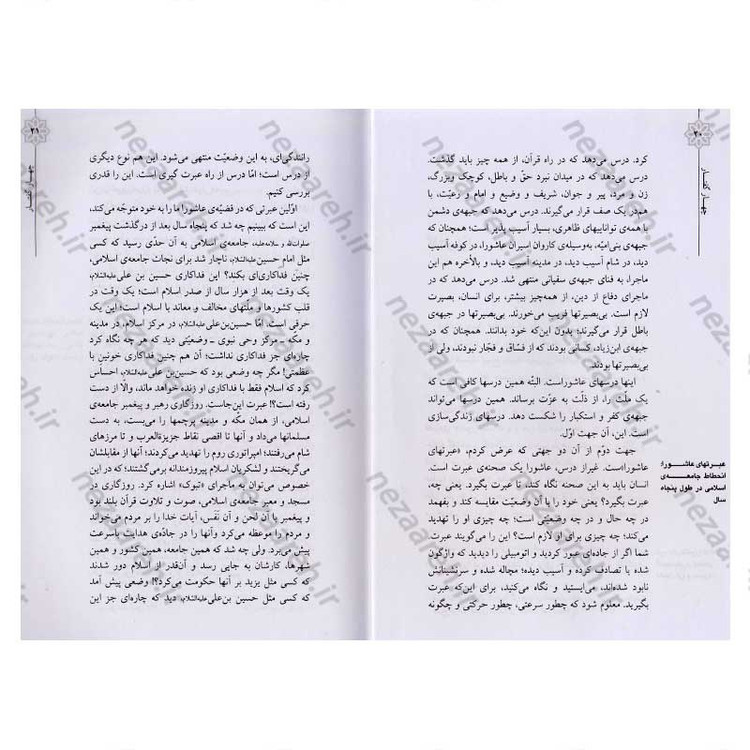 ۲۰
چهار گفتار
کرد. درس می‌دهد که در راه قرآن، از همه چیز باید گذشت.
درس می‌دهد که در میدان نبرد حقّ و باطل، کوچک وبزرگ،
زن و مرد، پیر و جوان، شریف و وضیع و امام و رعیّت، با
هم‌در یک صف قرار می‌گیرند. درس می‌دهد که جبهه‌ی دشمن
با همه‌ی تواناییهای ظاهری، بسیار آسیب پذیر است؛ همچنان که
جبهه‌ی بنی‌امیّه، به‌وسیله‌ی کاروان اسیران عاشورا، در کوفه آسیب
دید، در شام آسیب دید، در مدینه آسیب دید، و بالأخره هم این
ماجرا، به فنای جبهه‌ی سفیانی منتهی شد. درس می‌دهد که در
ماجرای دفاع از دین، از همه‌چیز بیشتر، برای انسان، بصیرت
لازم است. بی‌بصیرتها فریب می‌خورند. بی‌بصیرتها در جبهه‌ی
باطل قرار می‌گیرند؛ بدون این‌که خود بدانند. همچنان که در
جبهه‌ی ابن‌زیاد، کسانی بودند که از فسّاق و فجّار نبودند، ولی از
بی‌بصیرتها بودند.
اینها درسهای عاشوراست. البتّه همین درسها کافی است که
یک ملّت را، از ذلّت به عزّت برساند. همین درسها می‌تواند
جبهه‌ی کفر و استکبار را شکست دهد. درسهای زندگی‌سازی
است. این، آن جهت اوّل.
عبرتهای عاشورا؛
انحطاط جامعه‌ی
اسلامی در طول پنجاه
سال
جهت دوم از آن دو جهتی که عرض کردم، «عبرتهای
عاشورا»ست. غیراز درس، عاشورا یک صحنه‌ی عبرت است.
انسان باید به این صحنه نگاه کند، تا عبرت بگیرد. یعنی چه،
عبرت بگیرد؟ یعنی خود را با آن وضعیّت مقایسه کند و بفهمد
در چه حال و در چه وضعیّتی است؛ چه چیزی او را تهدید
می‌کند؛ چه چیزی برای او لازم است؟ این را می‌گویند عبرت.
شما اگر از جاده‌ای عبور کردید و اتومبیلی را دیدید که واژگون
شده یا تصادف کرده و آسیب دیده؛ مچاله شده و سرنشینانش
نابود شده‌اند، می‌ایستید و نگاه می‌کنید، برای این‌که عبرت
بگیرید. معلوم شود که چطور سرعتی، چطور حرکتی و چگونه
۲۱
چهار گفتار
رانندگی‌ای، به این وضعیّت منتهی می‌شود. این هم نوع دیگری
از درس است؛ امّا درس از راه عبرت گیری است. این را قدری
بررسی کنیم.
اوّلین عبرتی که در قضیّه‌ی عاشورا ما را به خود متوجّه می‌کند،
این است که ببینیم چه شد که پنجاه سال بعد از درگذشت پیغمبر
صلوات‌الله و سلامه‌علیه، جامعه‌ی اسلامی به آن حدّی رسید که کسی
مثل امام حسین علیه‌السّلام، ناچار شد برای نجات جامعه‌ی اسلامی،
چنین فداکاری‌ای بکند؟ این فداکاری حسین بن علی علیه‌السّلام،
یک وقت بعد از هزار سال از صدر اسلام است؛ یک وقت در
قلب کشورها و ملّتهای مخالف و معاند با اسلام است؛ این یک
حرفی است. امّا حسین‌بن‌علی علیه‌السّلام، در مرکز اسلام، در مدینه
و مکّه - مرکز وحی نبوی - وضعیّتی دید که هر چه نگاه کرد
چاره‌ای جز فداکاری نداشت؛ آن هم چنین فداکاری خونین با
عظمتی! مگر چه وضعی بود که حسین‌بن علی علیه‌السّلام، احساس
کرد که اسلام فقط با فداکاری او زنده خواهد ماند، والّا از دست
رفته است؟! عبرت این‌جاست. روزگاری رهبر و پیغمبر جامعه‌ی
اسلامی، از همان مکّه و مدینه پرچمها را می‌بست، به دست
مسلمانها می‌داد و آنها تا اقصی نقاط جزیرةالعرب و تا مرزهای
شام می‌رفتند؛ امپراتوری روم را تهدید می‌کردند؛ آنها از مقابلشان
می‌گریختند و لشکریان اسلام پیروزمندانه برمی‌گشتند؛ که در این
خصوص می‌توان به ماجرای «تبوک» اشاره کرد. روزگاری در
مسجد و معبر جامعه‌ی اسلامی، صوت و تلاوت قرآن بلند بود
و پیغمبر با آن لحن و آن نَفَس، آیات خدا را بر مردم می‌خواند
و مردم را موعظه می‌کرد وآنها را در جادّه‌ی هدایت باسرعت
پیش می‌برد. ولی چه شد که همین جامعه، همین کشور و همین
شهرها، کارشان به جایی رسد و آن‌قدر از اسلام دور شدند
که کسی مثل یزید بر آنها حکومت می‌کرد؟! وضعی پیش آمد
که کسی مثل حسین بن‌علی علیه‌السّلام، دید که چاره‌ای جز این
nezaareh.ir